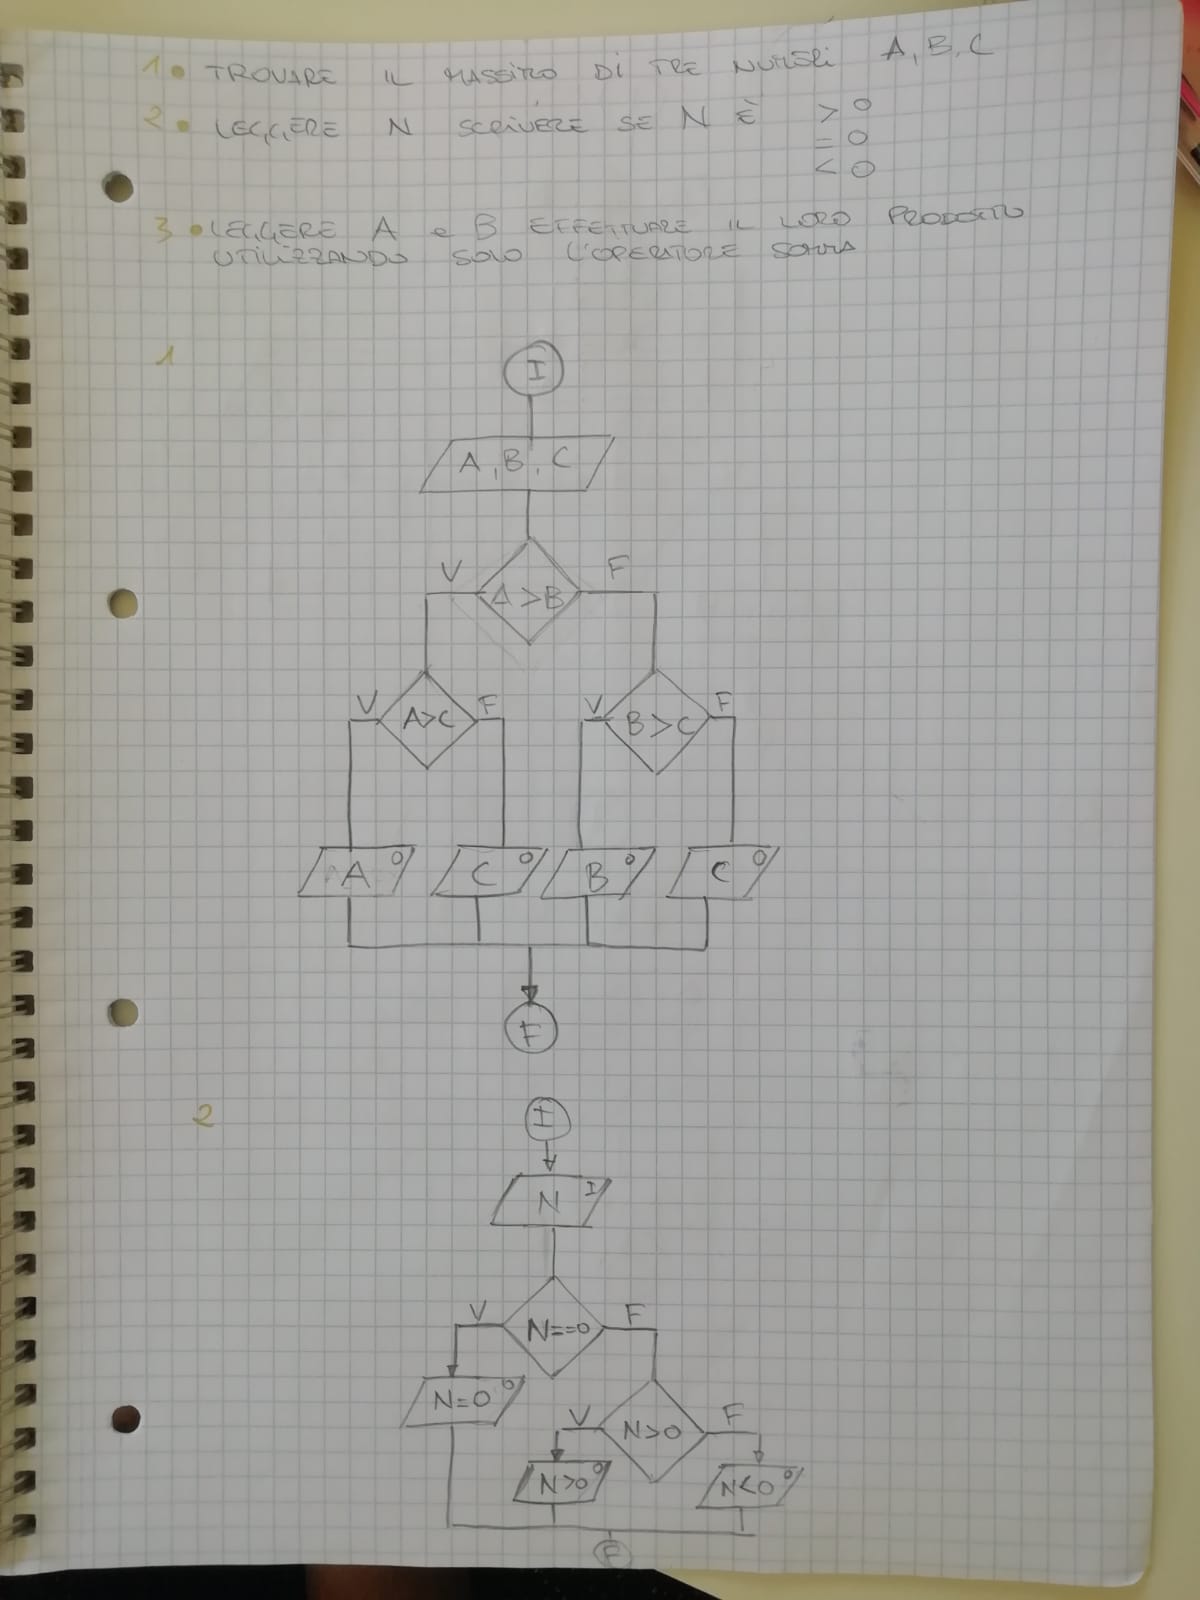 1• TROVARE IL MASSIMO DI TRE NUMERI A, B, C
2• LEGGERE N SCRIVERE SE N È > 0
= 0
< 0
3• LEGGERE A e B EFFETTUARE IL LORO PRODOTTO
UTILIZZANDO SOLO L'OPERATORE SOMMA
1
I
A, B, C
V A>B F
V A>C F V B>C F
A O C O B O C O
F
2
I
N I
V N==0 F
N=0 O V N>0 F
N>0 O N<0 O
F